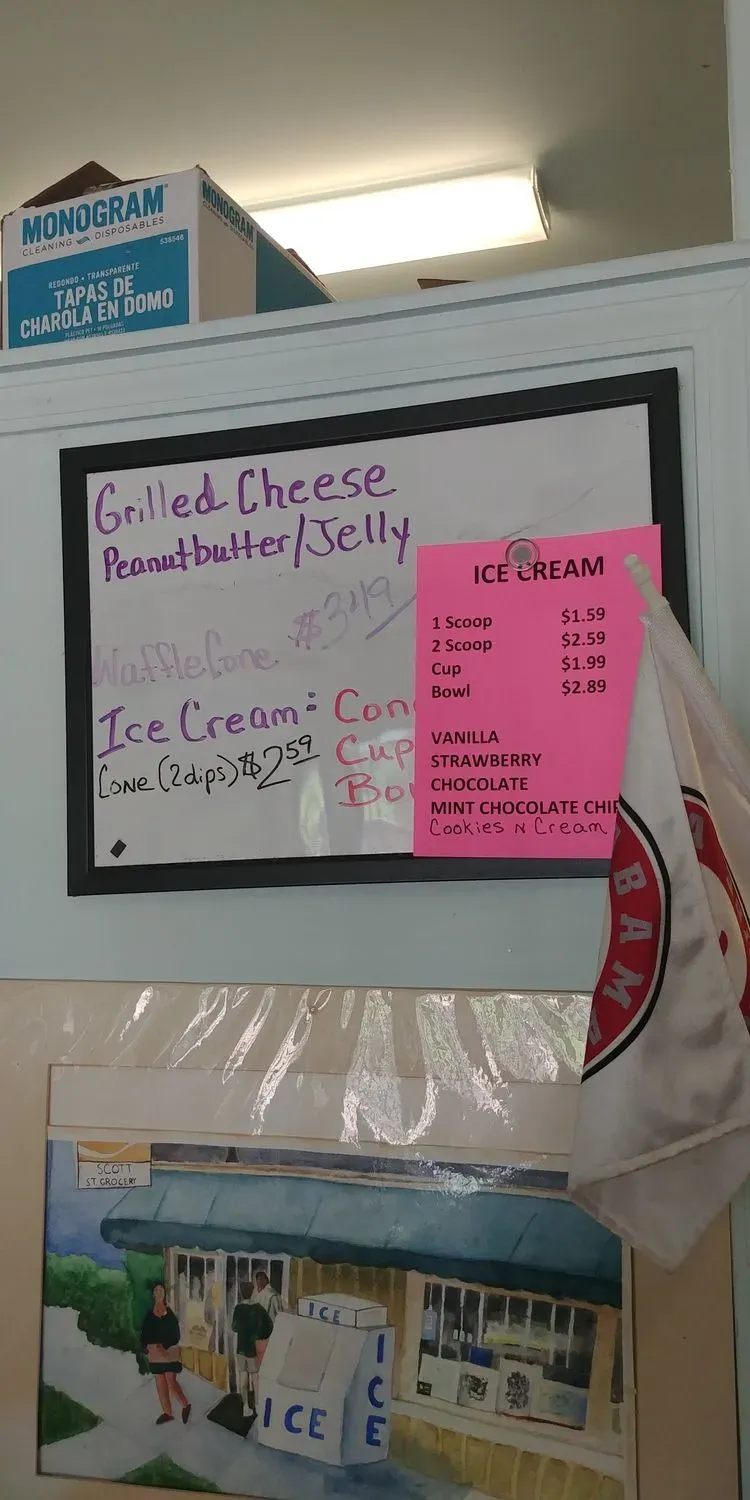 MONOGRAM
CLEANING DISPOSABLES
538546
REDONDO • TRANSPARENTE
TAPAS DE
CHAROLA EN DOMO
MONOGRAM
Grilled Cheese
Peanutbutter/Jelly
Waffle Cone $3.49
Ice Cream: Con
Cone (2 dips) $2.59 Cup
ICE CREAM
1 Scoop $1.59
2 Scoop $2.59
Cup $1.99
Bowl $2.89
VANILLA
STRAWBERRY
CHOCOLATE
MINT CHOCOLATE CHIP
Cookies N Cream
BAMA
SCOTT
ST. GROCERY
ICE
ICE
ICE